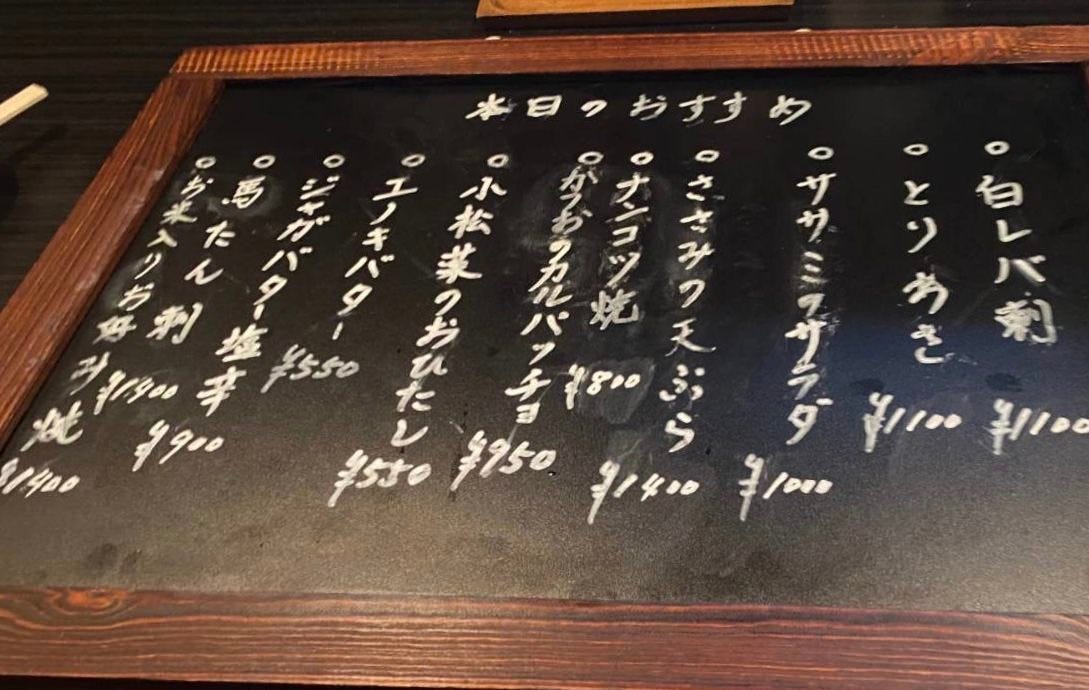 本日のおすすめ
○白レバ刺 ¥1100
○とりわさ ¥1100
○ササミのサラダ ¥1000
○ささみの天ぷら ¥1400
○ナンコツ焼 ¥800
○かつおのカルパッチョ ¥950
○小松菜のおひたし ¥550
○エノキバター ¥550
○ジャガバター塩辛 ¥900
○馬たん刺 ¥1400
○お米入りお好み焼 ¥1400